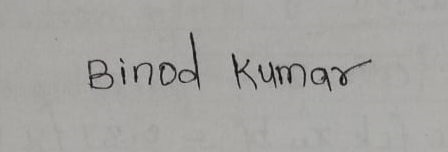 Binod Kumar